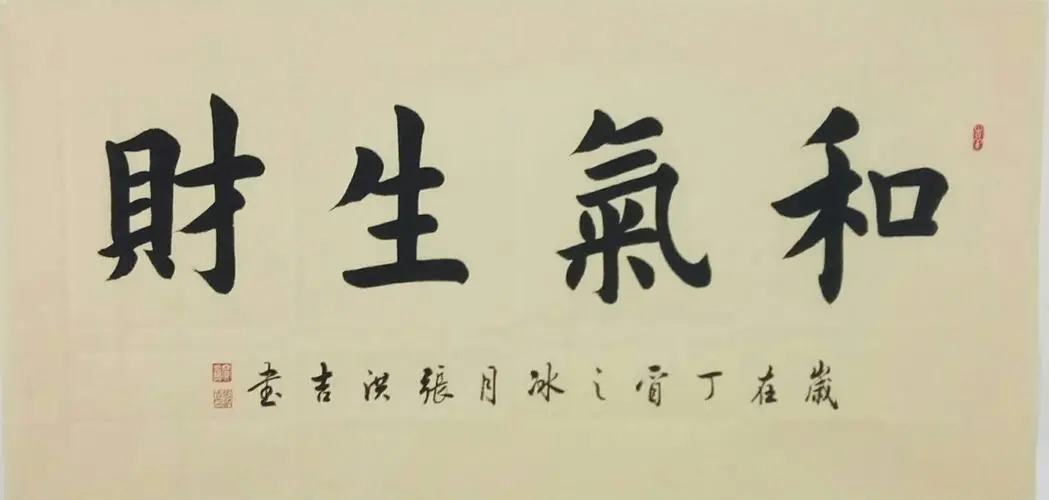 和氣生財
歲在丁酉之冰月張洪吉書